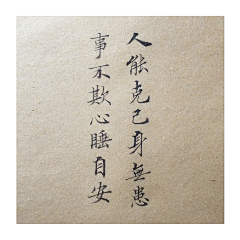 人能克己身無患
事不欺心睡自安